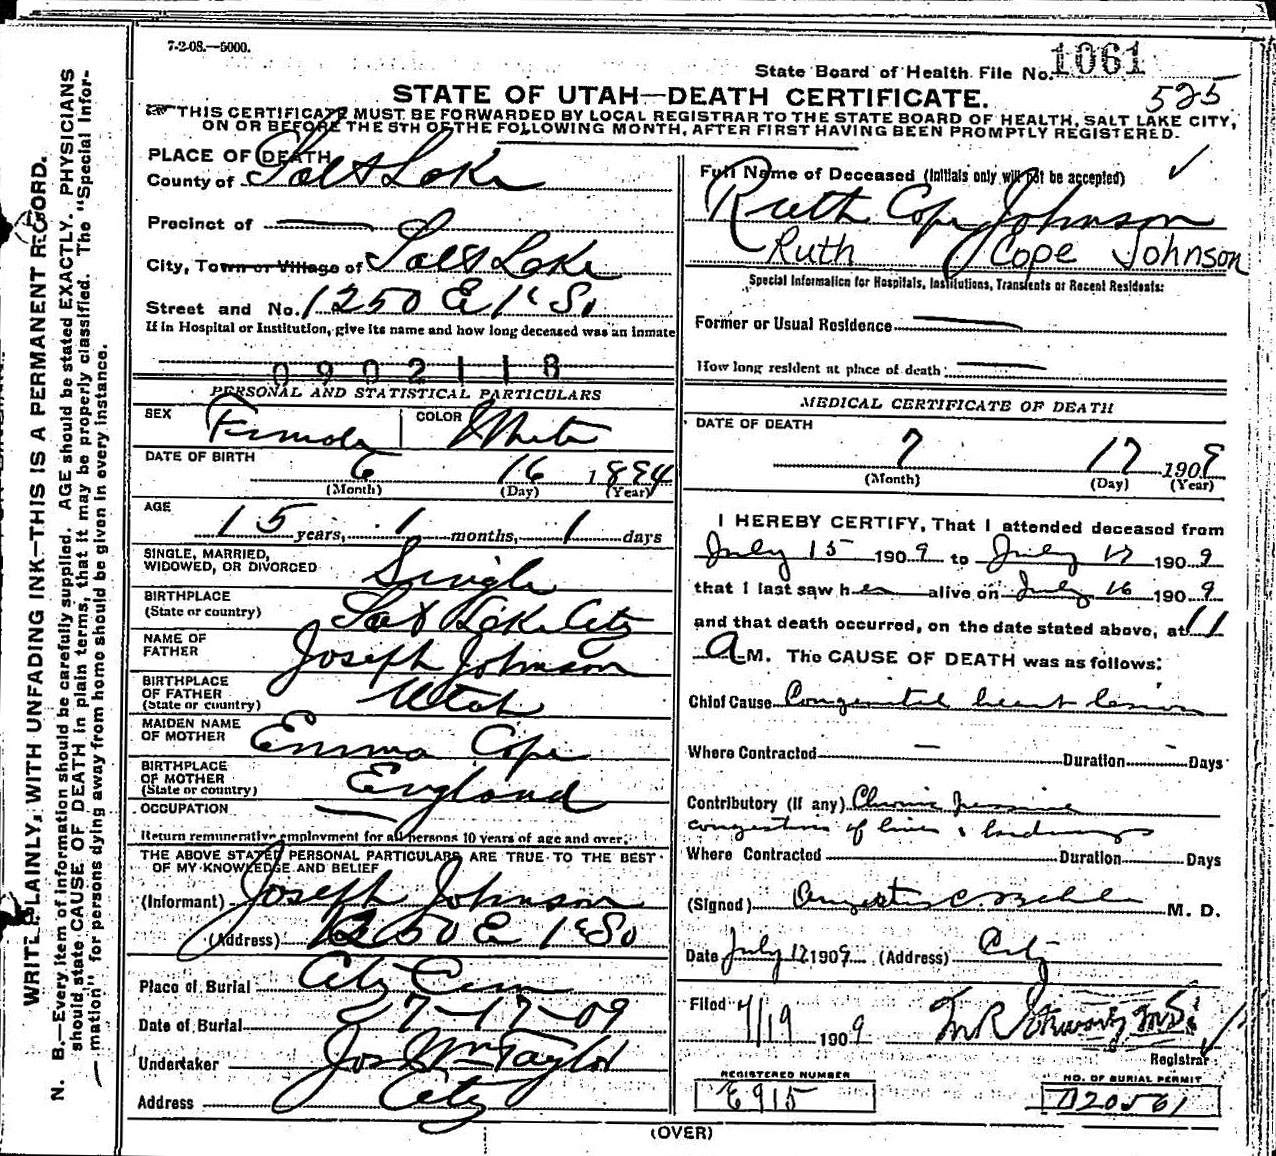 7-2-08.—5000.
State Board of Health File No. 1061
525
STATE OF UTAH—DEATH CERTIFICATE.
THIS CERTIFICATE MUST BE FORWARDED BY LOCAL REGISTRAR TO THE STATE BOARD OF HEALTH, SALT LAKE CITY,
ON OR BEFORE THE 5TH OF THE FOLLOWING MONTH, AFTER FIRST HAVING BEEN PROMPTLY REGISTERED.
WRITE PLAINLY, WITH UNFADING INK—THIS IS A PERMANENT RECORD.
N. B.—Every item of information should be carefully supplied. AGE should be stated EXACTLY. PHYSICIANS
should state CAUSE OF DEATH in plain terms, that it may be properly classified. The "Special Infor-
mation" for persons dying away from home should be given in every instance.
PLACE OF DEATH
County of Salt Lake
Precinct of
City, Town or Village of Salt Lake
Street and No. 1250 E 1st So
If in Hospital or Institution, give its name and how long deceased was an inmate
0902118
PERSONAL AND STATISTICAL PARTICULARS
SEX Female COLOR White
DATE OF BIRTH 6 16 1894
(Month) (Day) (Year)
AGE 15 years, 1 months, 1 days
SINGLE, MARRIED,
WIDOWED, OR DIVORCED Single
BIRTHPLACE
(State or country) Salt Lake City
NAME OF
FATHER Joseph Johnson
BIRTHPLACE
OF FATHER
(State or country) Utah
MAIDEN NAME
OF MOTHER Emma Cope
BIRTHPLACE
OF MOTHER
(State or country) England
OCCUPATION
Return remunerative employment for all persons 10 years of age and over.
THE ABOVE STATED PERSONAL PARTICULARS ARE TRUE TO THE BEST
OF MY KNOWLEDGE AND BELIEF
(Informant) Joseph Johnson
(Address) 1250 E 1st So
Place of Burial City Cem
Date of Burial 7-17-09
Undertaker Jos Wm Taylor
Address City
Full Name of Deceased (Initials only will not be accepted)
Ruth Cope Johnson
Ruth Cope Johnson
Special Information for Hospitals, Institutions, Transients or Recent Residents:
Former or Usual Residence
How long resident at place of death:
MEDICAL CERTIFICATE OF DEATH
DATE OF DEATH
7 17 1909
(Month) (Day) (Year)
I HEREBY CERTIFY, That I attended deceased from
July 15 1909 to July 17 1909
that I last saw her alive on July 16 1909
and that death occurred, on the date stated above, at 11
A M. The CAUSE OF DEATH was as follows:
Chief Cause Congenital heart lesion
Where Contracted Duration Days
Contributory (if any) Chronic passive
congestion of liver & 
Where Contracted Duration Days
(Signed) M. D.
Date July 17 1909 (Address) City
Filed 7/19 1909
Registrar
REGISTERED NUMBER
E915
NO. OF BURIAL PERMIT
D20561
(OVER)